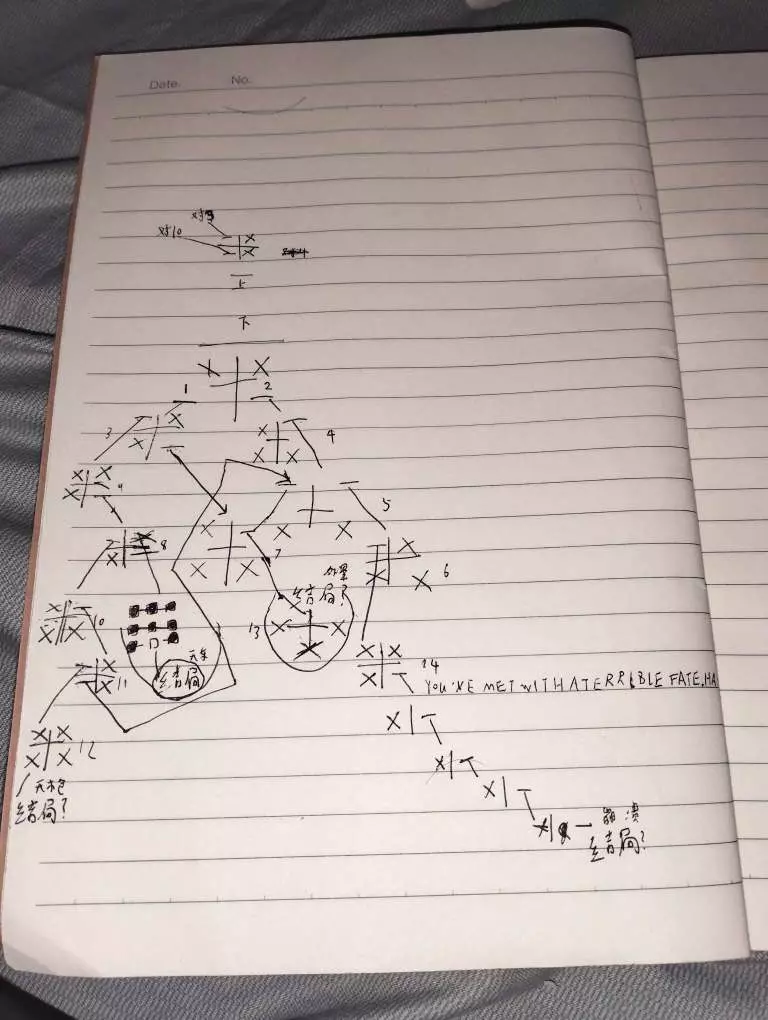 Date. No.
对10
上
下
1 2
3 4
5
8 7
6
结局?
10 13
结局
11 14
YOU'VE MET WITH A TERRIBLE FATE, HA
12
结局?
崩溃
结局?